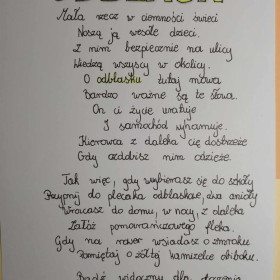 Mała rzecz w ciemności świeci
Noszą ją wesołe dzieci.
Z nim bezpiecznie na ulicy
Wiedzą wszyscy w okolicy.
O odblasku tutaj mowa
Bardzo ważne są te słowa.
On ci życie uratuje
I samochód wyhamuje.
Kierowca z daleka cię dostrzeże
Gdy ozdobisz nim odzież.
Tak więc, gdy wybierasz się do szkoły
Przypnij do plecaka odblaskowe, dwa anioły
Wracasz do domu, w nocy, z daleka
Załóż pomarańczowego
Gdy na rower wsiadasz o zmroku
Pamiętaj o żółtej kamizelce oboku.
Bądź widoczny dla